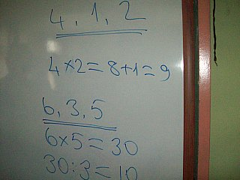 4,1,2
4×2=8+1=9
6,3,5
6×5=30
30:3=10